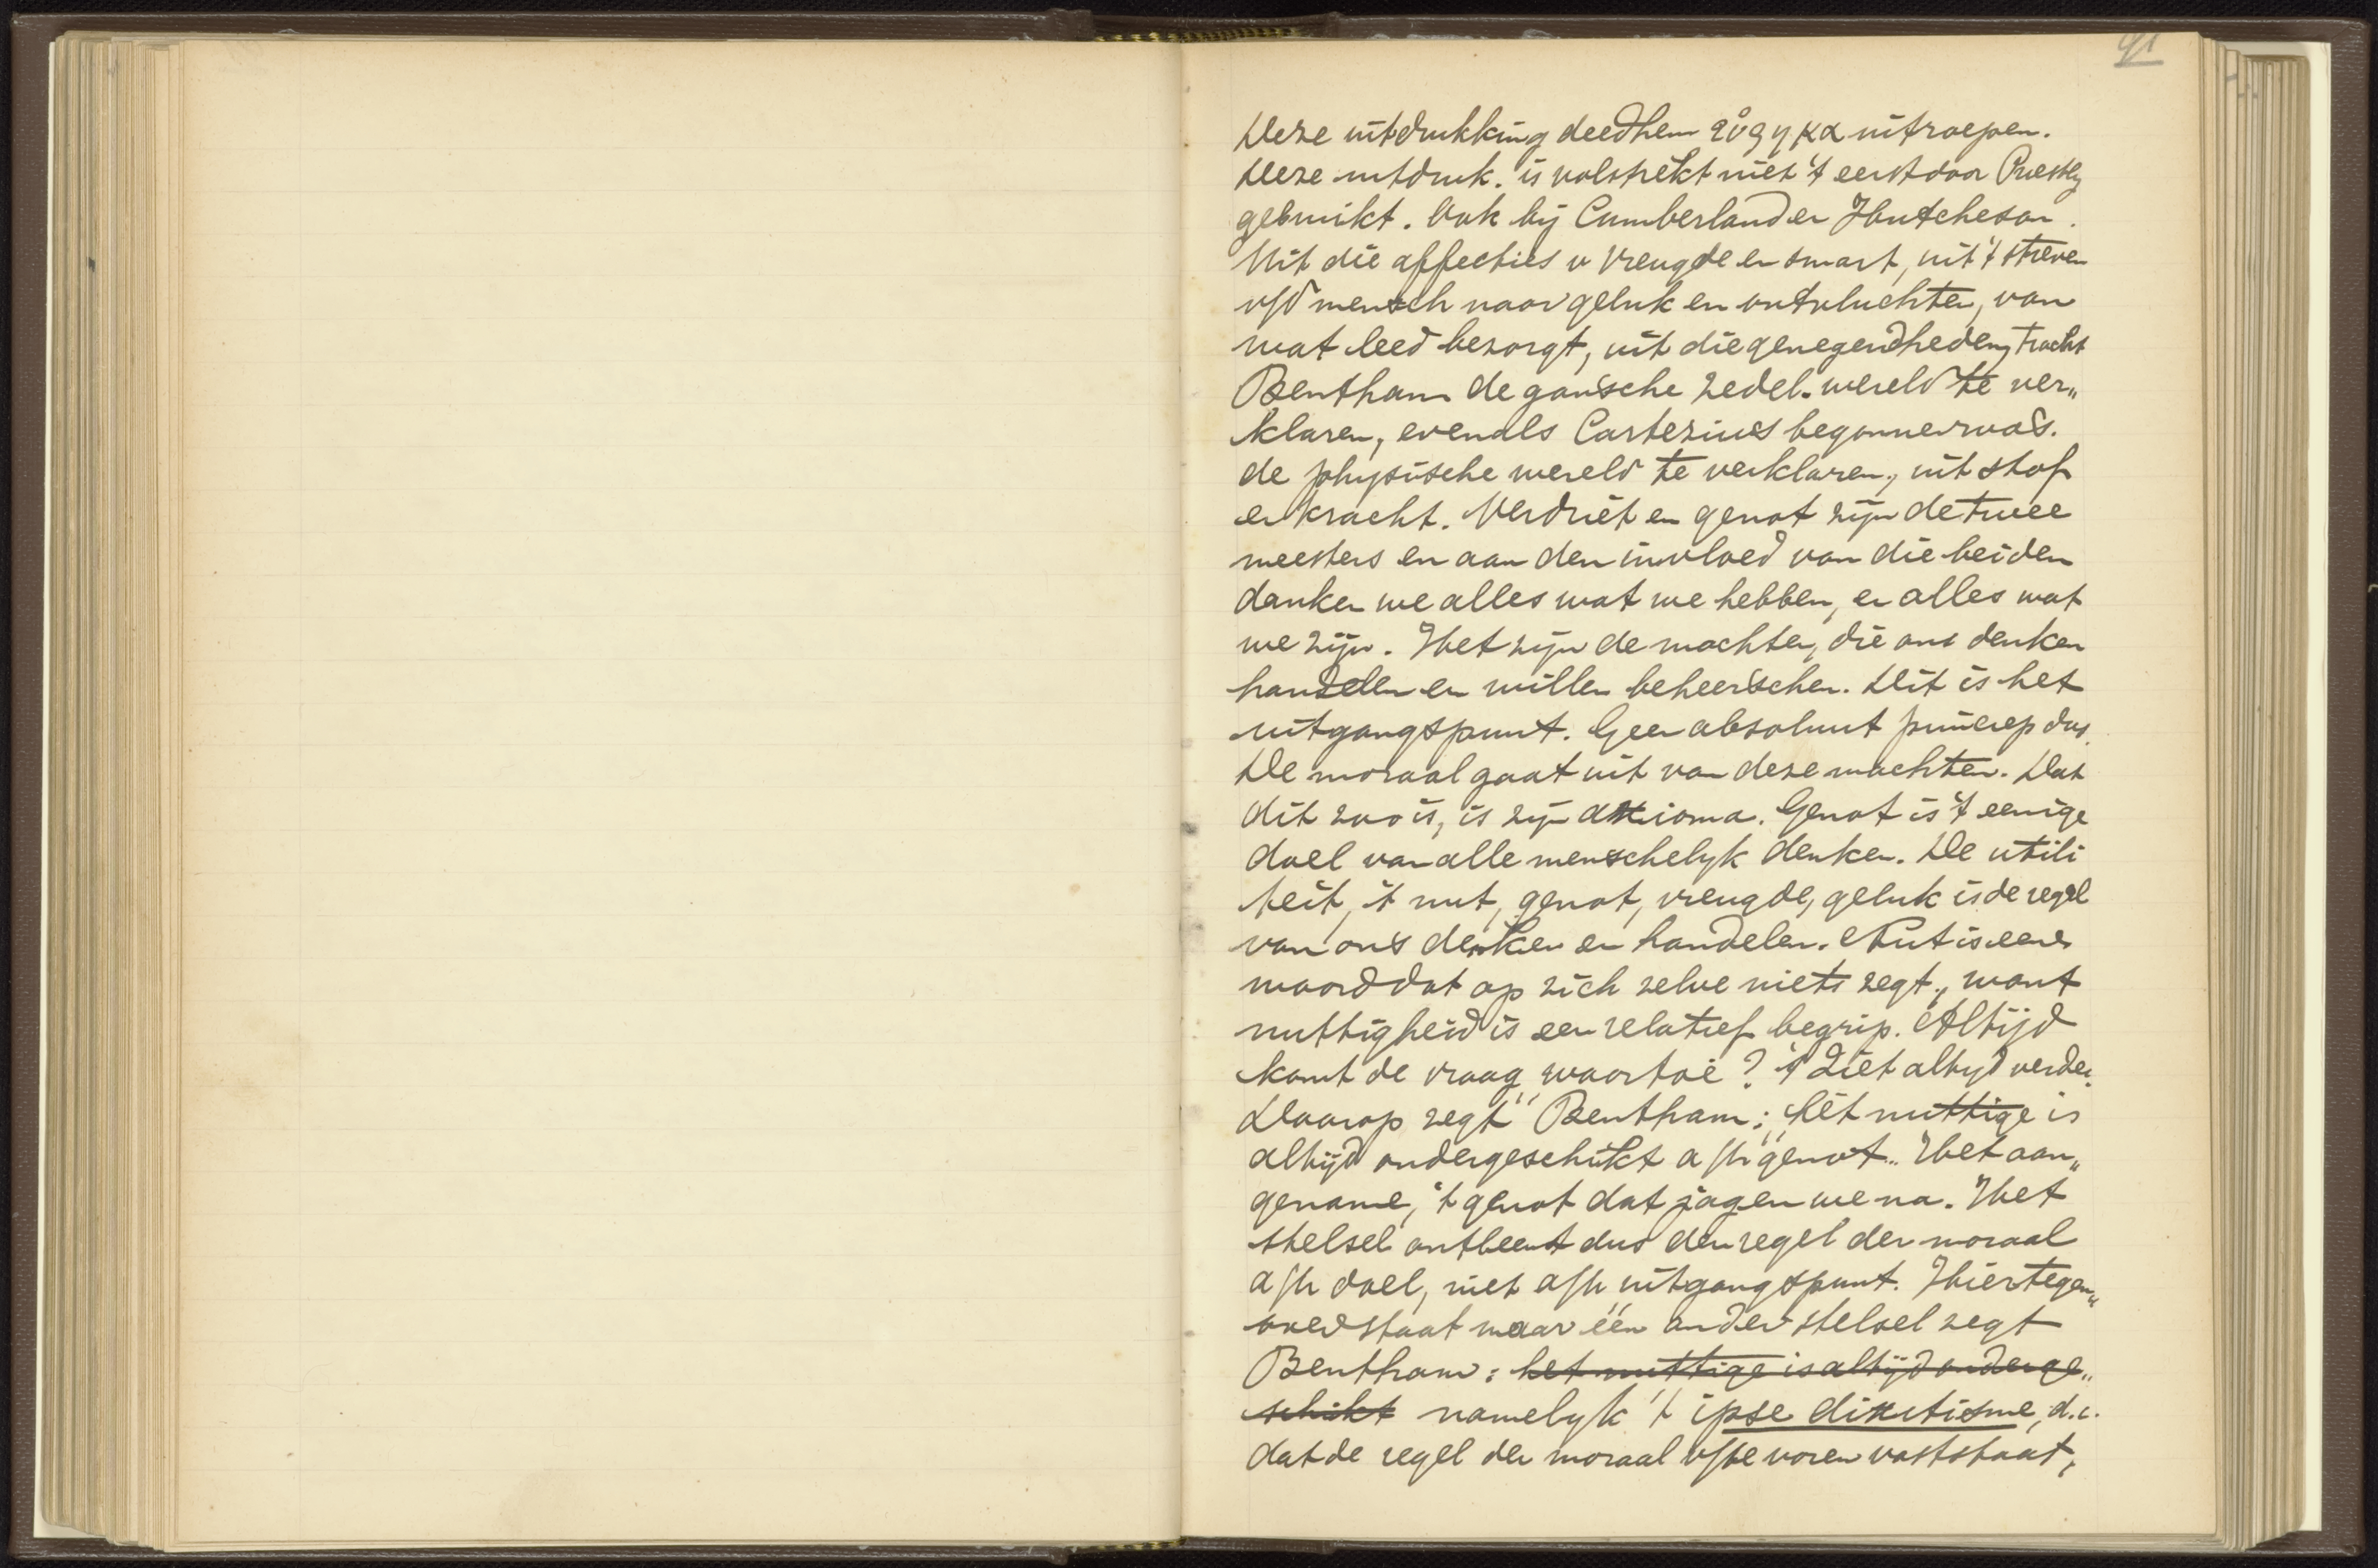 91
Deze uitdrukking deed hem εὕρηκα uitroepen.
Deze uitdruk. is volstrekt niet 't eerst door Priestly
gebruikt. Ook bij Cumberland en Hutcheson.
Uit die affecties v vreugde en smart, uit 't streven
v/d mensch naar geluk en ontvluchten, van
wat leed bezorgt, uit die genegendheden, tracht
Bentham de gansche zedel. wereld te ver„
klaren, evenals Cartezius begonnen was.
de physische wereld te verklaren, uit stof
en kracht. Verdriet en genot zijn de twee
meesters en aan den invloed van die beiden
danken we alles wat we hebben, en alles wat
we zijn. Het zijn de machten, die ons denken
handelen en willen beheerschen. Dit is het
uitgangspunt. Geen absoluut princiep dus.
De moraal gaat uit van deze machten. Dat
dit zoo is, is zijn axioma. Genot is 't eenige
doel van alle menschelyk denken. De utili
teit, 't nut, genot, vreugde, geluk is de regel
van ons denken en handelen. Nut is een
woord dat op zich zelve niets zegt, want
nuttigheid is een relatief begrip. Altijd
komt de vraag waartoe? 't Ziet altyd verder.
Daarop zegt Bentham: „het nuttige is
altijd ondergeschikt a/h genot„. Het aan„
gename, 't genot dat jagen we na. Het
stelsel ontleent dus den regel der moraal
a/h doel, niet a/h uitgangspunt. Hiertegen„
over staat maar één ander stelsel zegt
Bentham: het nuttige is altijd onderge„
schikt namelyk 't ipse dixitisme, d.i.
dat de regel der moraal v/te voren vaststaat,